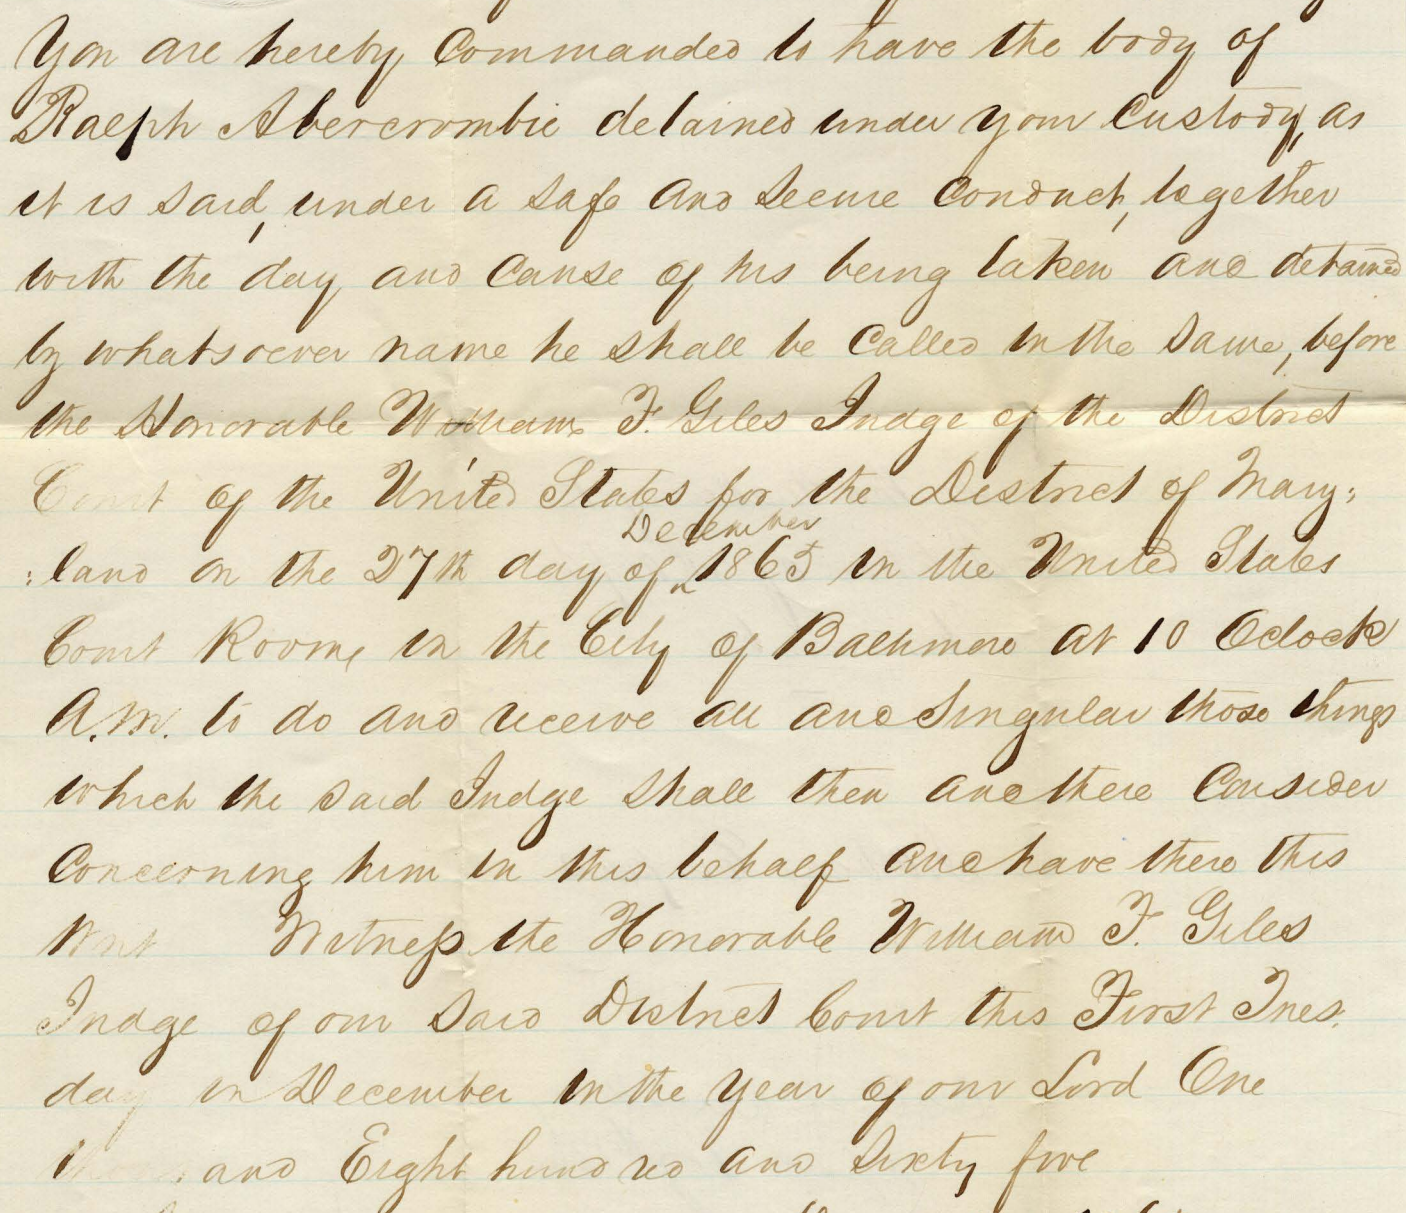 You are hereby Commanded to have the body of
Ralph Abercrombie detained under your Custody, as
it is said, under a safe and secure Conduct, together
with the day and Cause of his being taken and detained
by whatsoever name he shall be Called in the same, before
the Honorable William F. Giles Judge of the District
Court of the United States for the District of Mary:
December
:land on the 27th day of ^ 1865 in the United States
Court Room, in the City of Baltimore at 10 Oclock
A.M. to do and receive all and Singular those things
which the said Judge shall then and there Consider
Concerning him in this behalf and have there this
Writ Witness the Honorable William F. Giles
Judge of our said District Court this First Tues.
day in December in the year of our Lord One
thousand Eight hundred and Sixty five